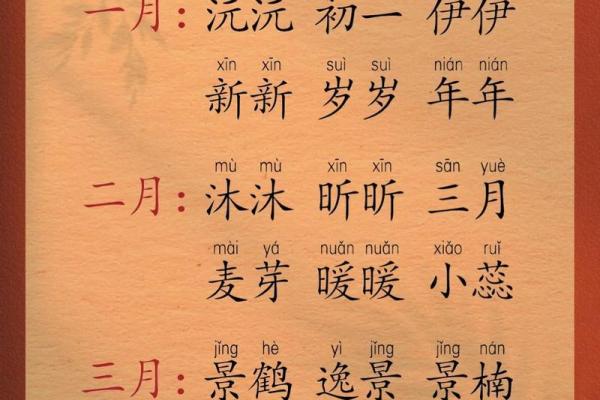 一月：沅沅 初一 伊伊
xīn xīn suì suì nián nián
新新 岁岁 年年
mù mù xīn xīn sān yuè
二月：沐沐 昕昕 三月
mài yá nuǎn nuǎn xiǎo ruǐ
麦芽 暖暖 小蕊
jǐng hè yì jǐng jǐng nán
三月：景鹤 逸景 景楠